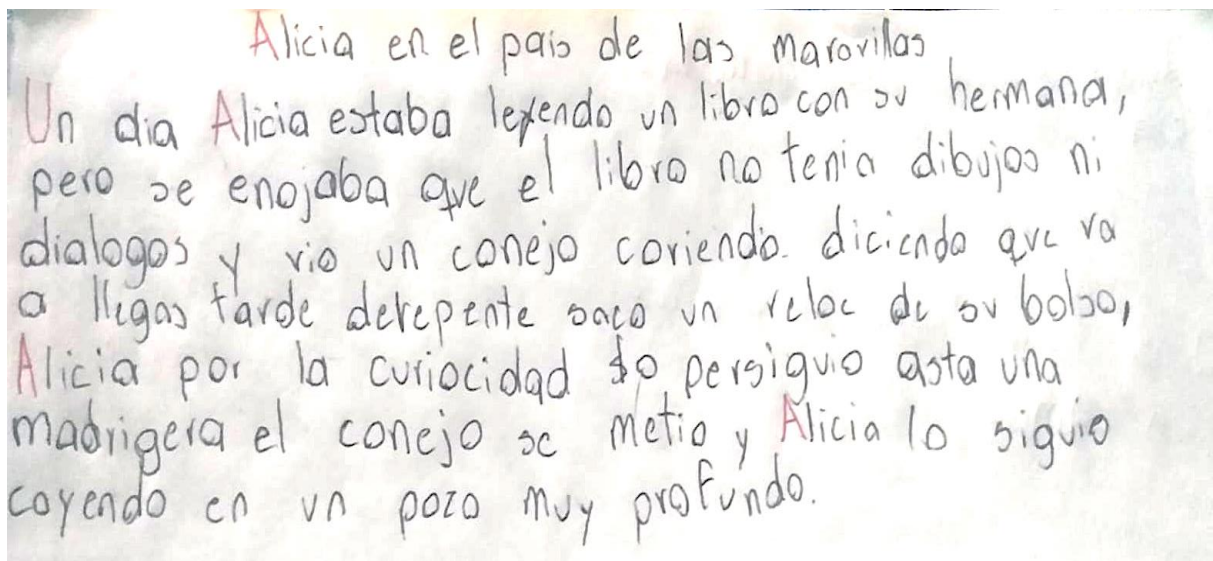 Alicia en el pais de las marovillas
Un dia Alicia estaba leyendo un libro con su hermana,
pero se enojaba que el libro no tenia dibujos ni
dialogos y vio un conejo coriendo. diciendo que va
a llegas tarde derepente saco un reloc de su bolso,
Alicia por la curiocidad lo persiguio asta una
madrigera el conejo se metio y Alicia lo siguio
coyendo en un pozo muy profundo.